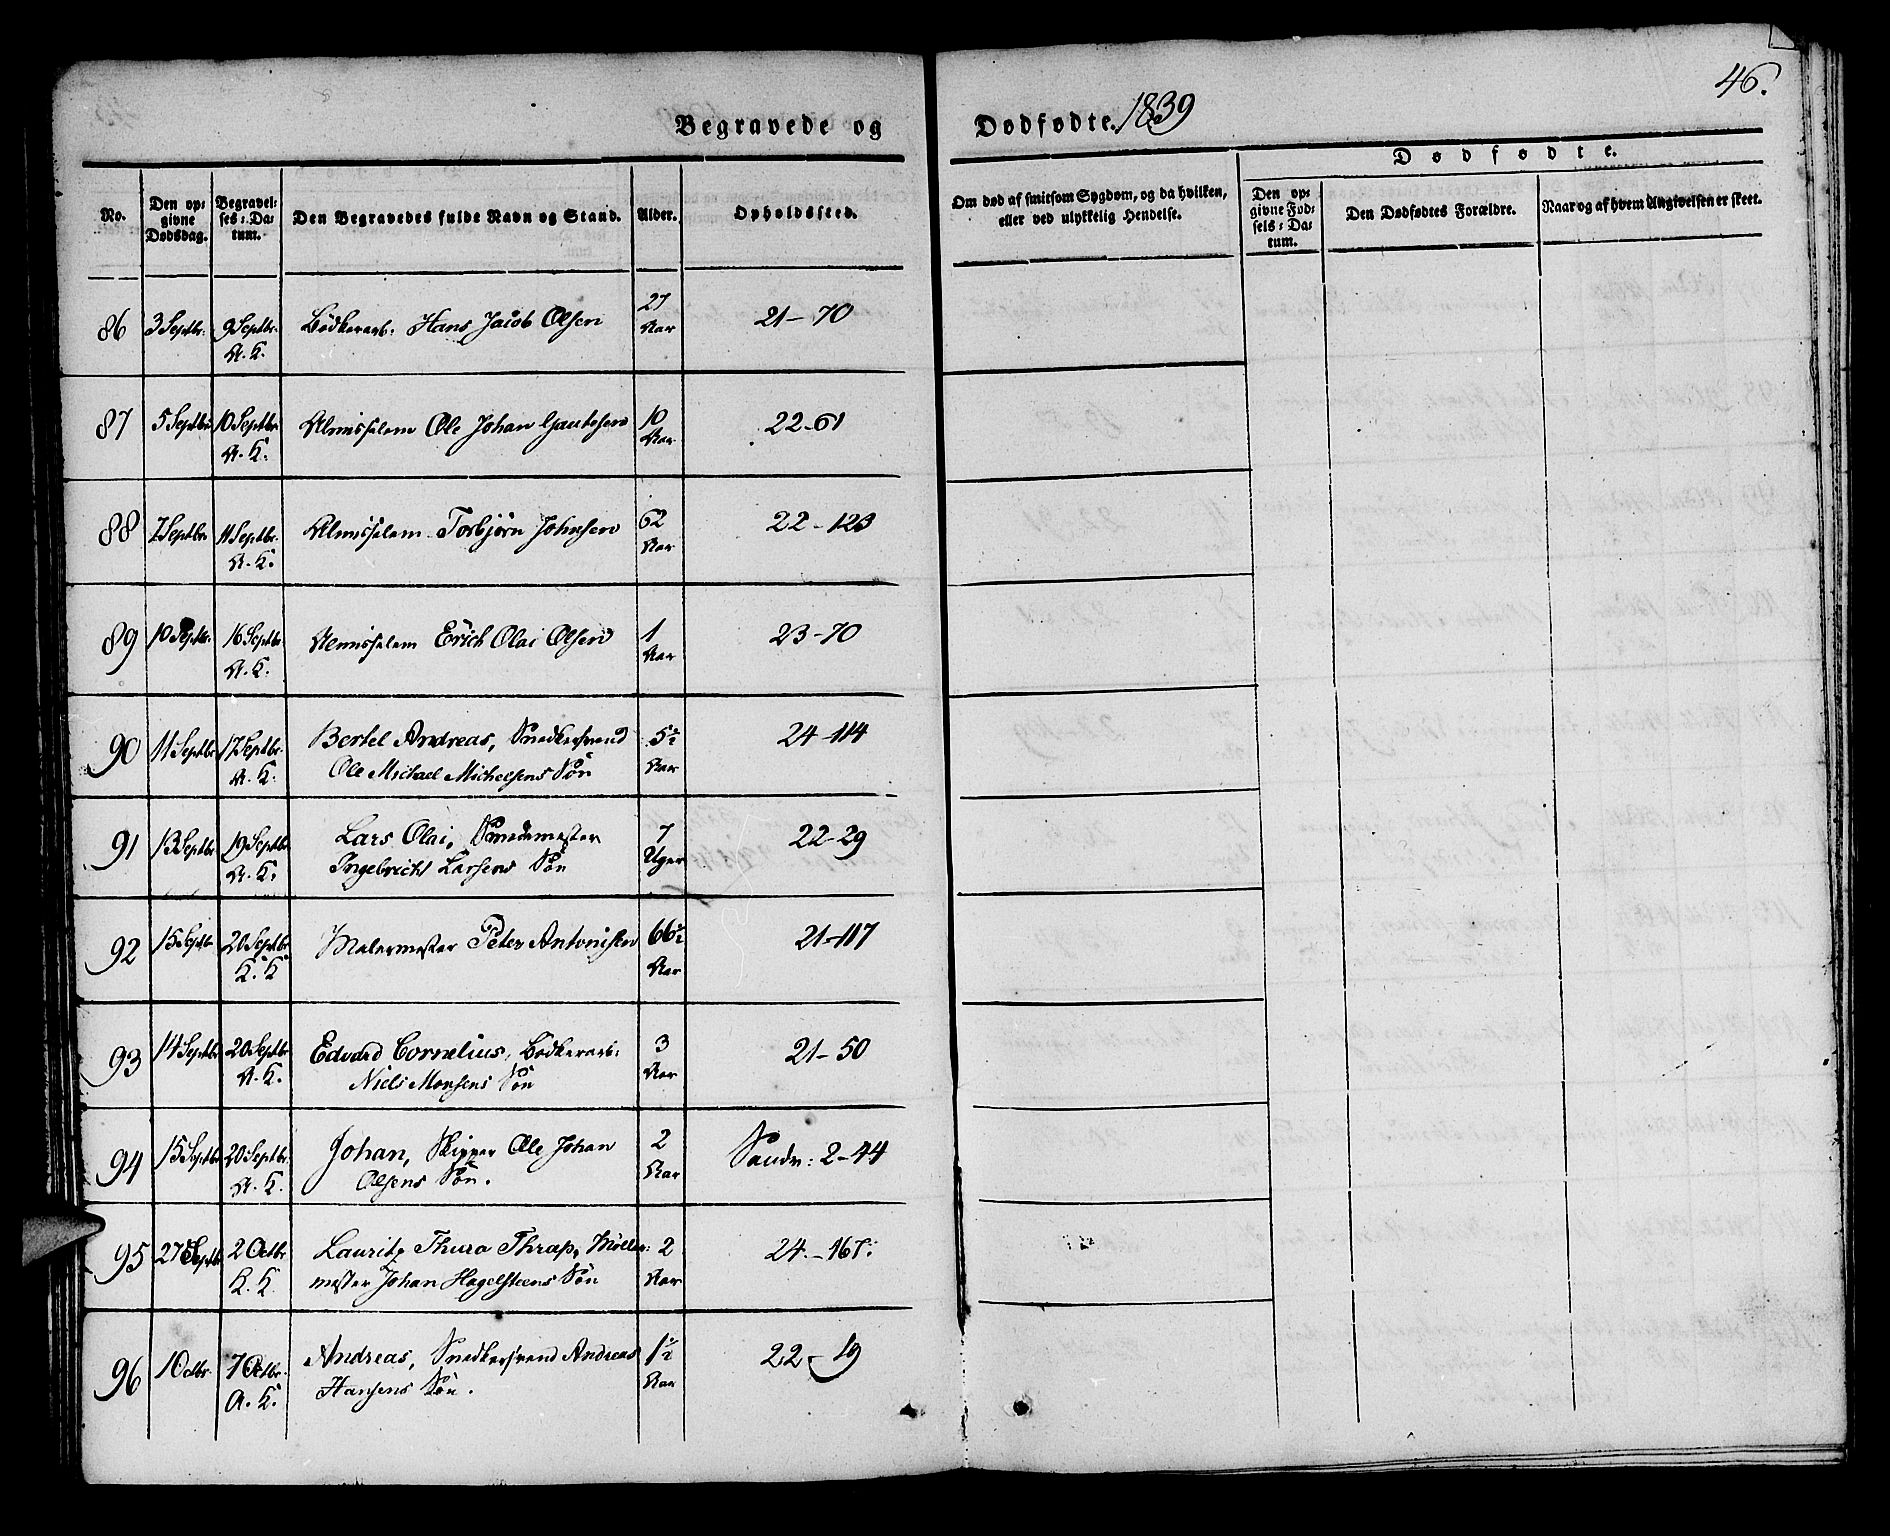 46.
Begravede og Dødfødte. 1839
No.
Den opgivne Dødsdag.
Begravelses-Datum.
Den Begravedes fulde Navn og Stand.
Alder.
Opholdssted.
Om død af smitsom Sygdom, og da hvilken, eller ved ulykkelig Hendelse.
Dødfødte.
Den opgivne Fødsels-Datum.
Den Dødfødtes Forældre.
Naar og af hvem Angivelsen er skeet.
86 3 Septbr. 9 Septbr. Bödkerarb: Hans Jacob Olsen 27 21-70
A. K. Aar
87 5 Septbr 10 Septbr Almisselem Ole Johan Gautesen 10 22-61
A. K. Aar
88 7 Septbr 11 Septbr. Almisselem Torbjørn Johnsen 62 22-123
A. K. Aar
89 10 Septbr. 16 Septbr. Almisselem Erich Olai Olsen 1 23-70
A. K. Aar
90 11 Septbr 17 Septbr. Bertel Andreas, Snedkersvend 5½ 24-114
A. K. Ole Michael Michelsens Sön Aar
91 13 Septbr 19 Septbr. Lars Olai, Smedemester 7 22-29
A. K. Ingebricht Larsens Sön Uger
92 15 Septbr 20 Septbr Malermester Peter Antonisen 66½ 21-117
K. K Aar
93 14 Septbr 20 Septbr Edvard Cornelius, Bödkerarb: 3 21-50
A. K. Niels Monsens Sön Aar
94 15 Septbr 20 Septbr. Johan, Skipper Ole Johan 2 Sandv: 2-44
A. K. Olsens Sön. Aar
95 27 Septb 2 Octbr Lauritz Thura Thrap, Möller- 2 24.-167.
K. K. mester Johan Hagelsteens Sön Aar
96 1 Octbr. 7 Octbr. Andreas, Snedkersvend Andreas 1½ 22-19
A. K. Hansens Sön. Aar